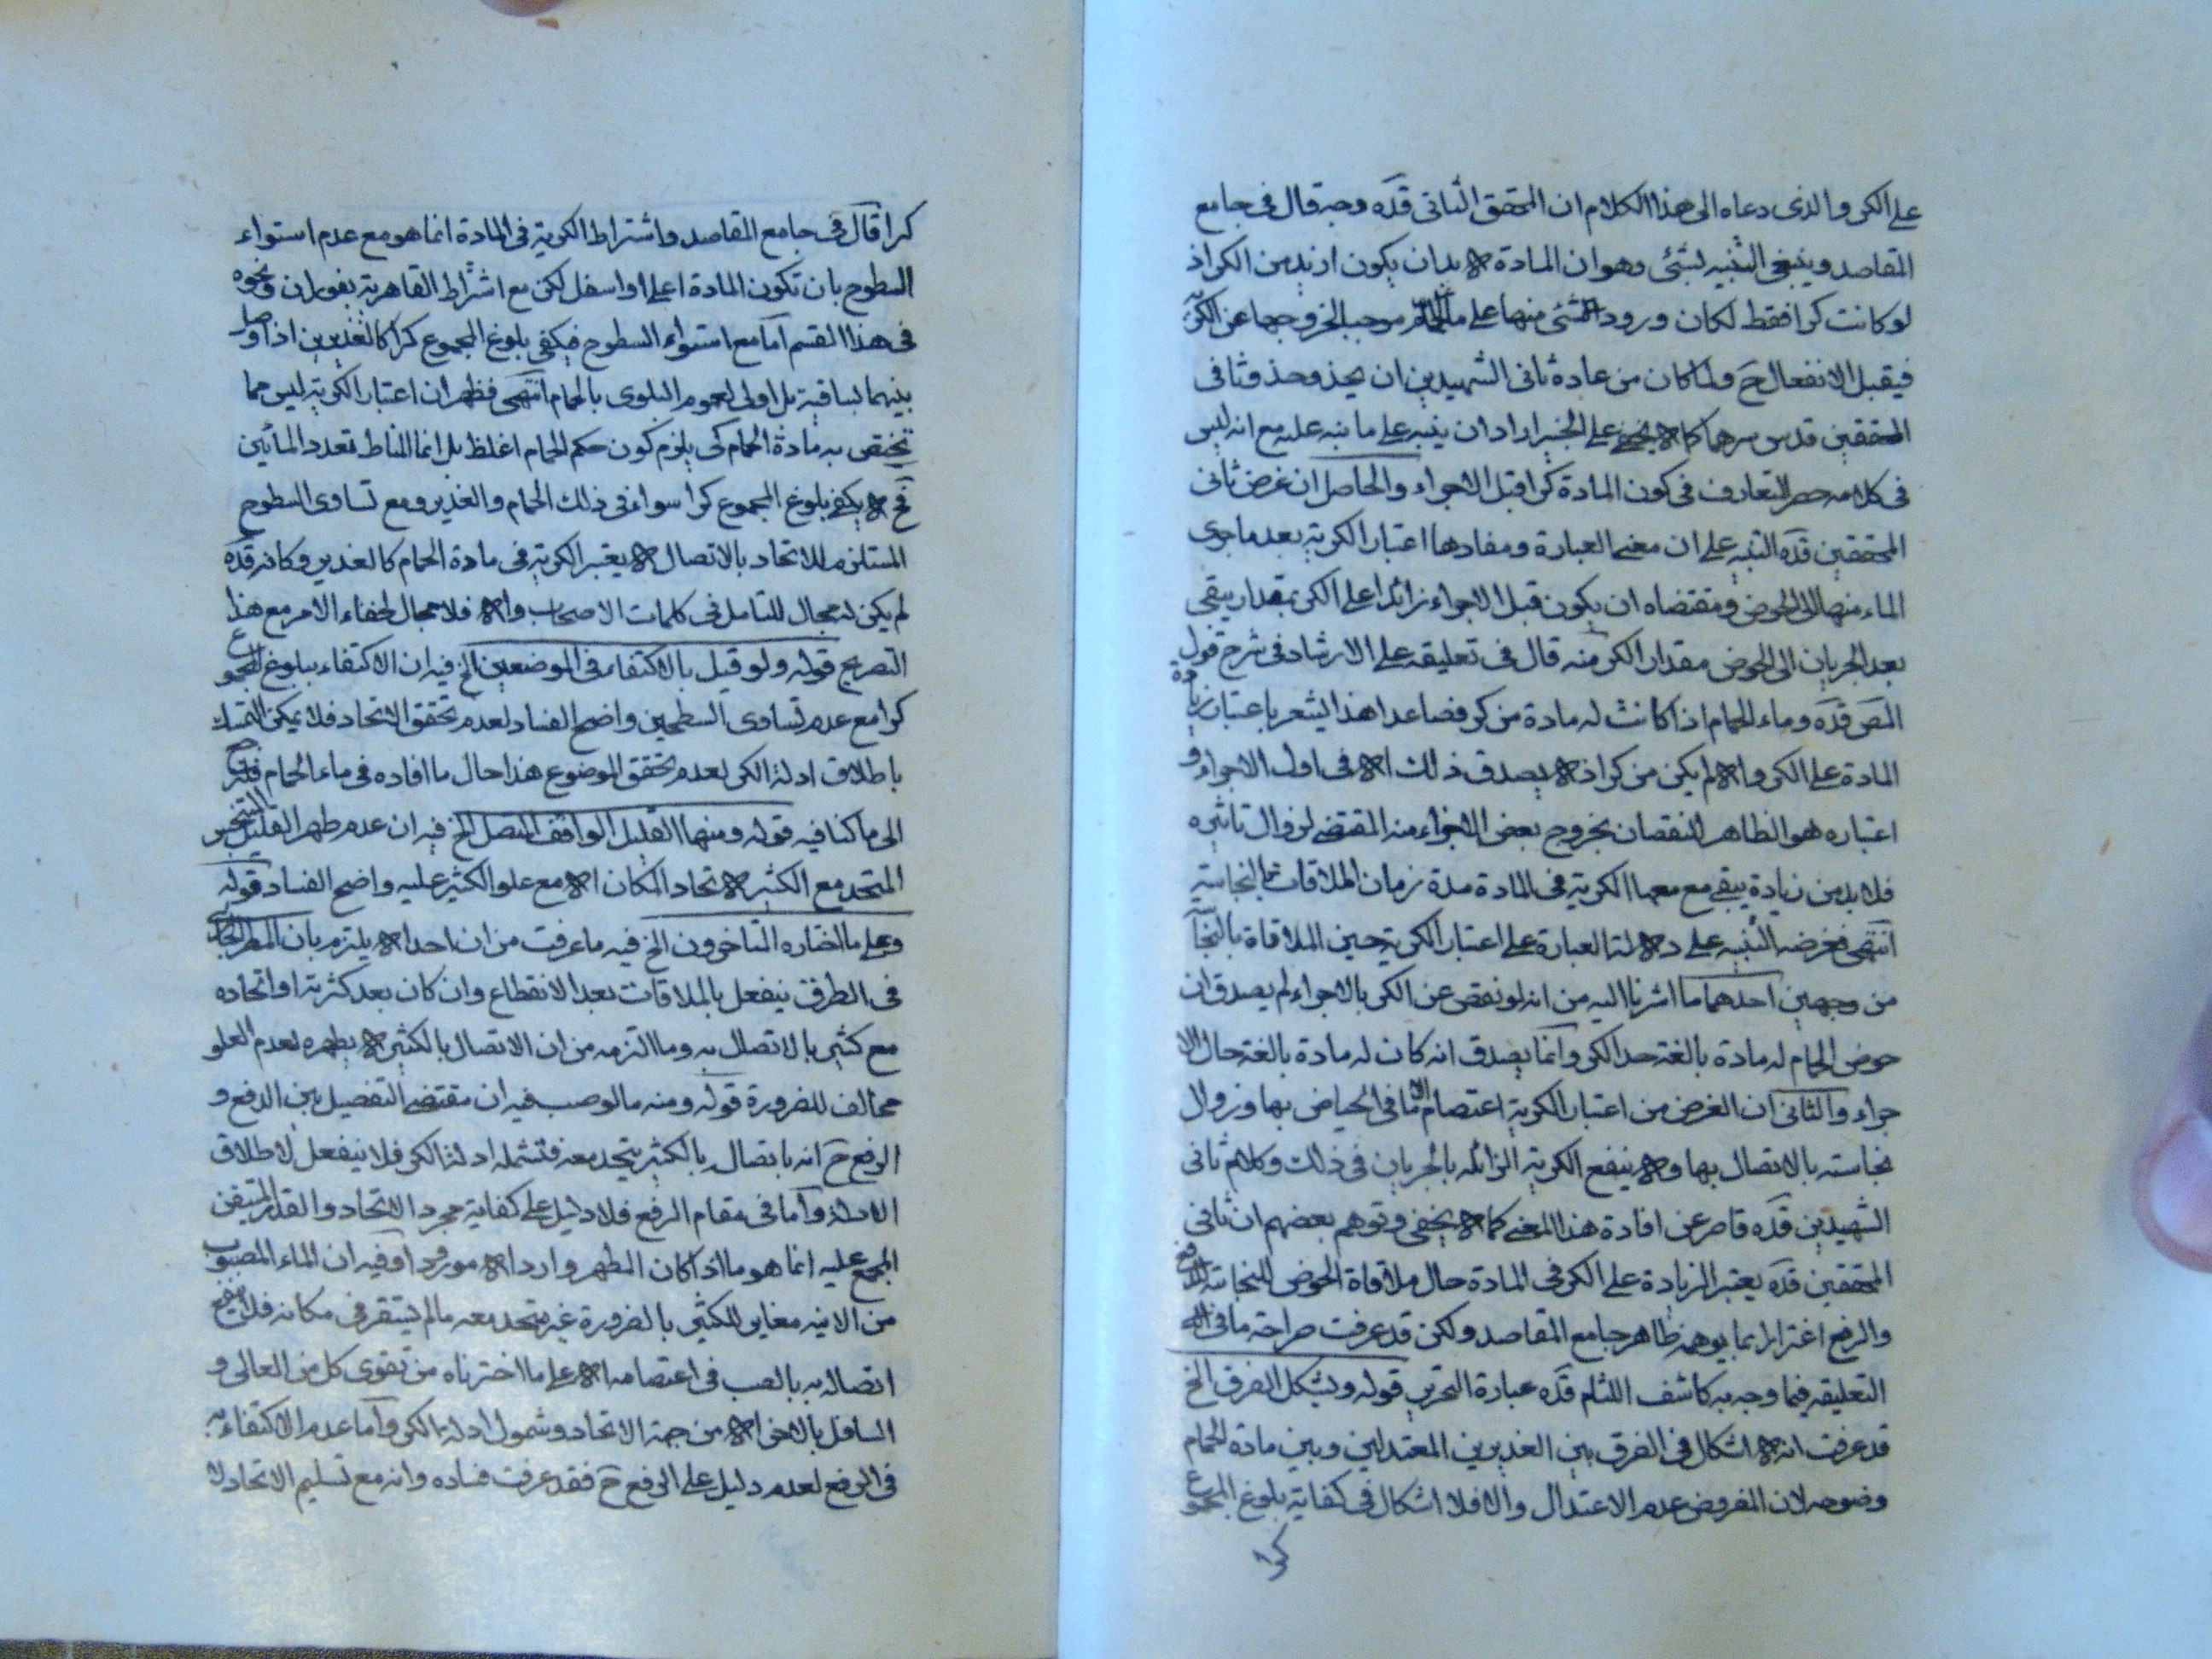 على الكر والذى دعاه الى هذا الكلام ان المحقق الثانى قده وجه قال فى جامع
المقاصد وينبغى التنبيه لشئ وهو ان المادة لا بد ان يكون ازيد من الكر اذ
لو كانت كرا فقط لكان ورود شئ منها على ماء الحمام موجبا لخروجها عن الكر
فيقبل الانفعال ح ولما كان من عادة ثانى الشهيدين ان يحذو حذو ثانى
المحققين قدس سرهما كما لا يخفى على الخبير اراد ان ينبه على ما نبه عليه مع انه ليس
فى كلامه حصر للتعارف فى كون المادة كرا قبل الاجراء والحاصل ان غرض ثانى
المحققين قده التنبيه على ان معنى العبارة ومفادها اعتبار الكرية بعد ما جرى
الماء منها الى الحوض ومقتضاه ان يكون قبل الاجراء زائدا على الكر بمقدار يبقى
بعد الجريان الى الحوض مقدار الكر منه قال فى تعليقه على الارشاد فى شرح قول
المص قده وماء الحمام اذا كانت له مادة من كر فصاعدا هذا يشعر باعتبار زيادة
المادة على الكر والا لم يكن من كر اذ لا يصدق ذلك الا فى اول الاجراء و
اعتباره هو الظاهر للنقصان بخروج بعض الاجزاء منه المقتضى لزوال تاثيره
فلا بد من زيادة يبقى مع معها الكرية فى المادة مدة زمان الملاقات للنجاسة
انتهى فغرضه التنبيه على دلالة العبارة على اعتبار الكرية حين الملاقاة بالنجا
من وجهين احدهما ما اشرنا اليه من انه لو نقص عن الكر بالاجراء لم يصدق ان
حوض الحمام له مادة بالغة حد الكر وانما يصدق انه كان له مادة بالغة حال الا
جراء والثانى ان الغرض من اعتبار الكرية اعتصام ما فى الحياض بها وزوال
نجاسته بالاتصال بها ولا ينفع الكرية الزائلة بالجريان فى ذلك وكلام ثانى
الشهيدين قده قاصر عن افادة هذا المعنى كما لا يخفى وتوهم بعضهم ان ثانى
المحققين قده يعتبر الزيادة على الكر فى المادة حال ملاقاة الحوض للنجاسة الدفع
والرفع اغترارا بما يوهمه ظاهر جامع المقاصد ولكن قد عرفت صراحة ما فى
التعليقه فيما وجه به كاشف اللثام قده عبارة التحرير قوله ويشكل الفرق الخ
قد عرفت انه لا اشكال فى الفرق بين الغديرين المعتدلين وبين مادة الحمام
وضوحه لان المفروض عدم الاعتدال والا فلا اشكال فى كفاية بلوغ المجموع
كرا
كرا قال فى جامع المقاصد واشتراط الكرية فى المادة انما هو مع عدم استواء
السطوح بان تكون المادة اعلى او اسفل لكن مع اشتراط القاهرية بفوران ونحوه
فى هذا القسم اما مع استواء السطوح فيكفى بلوغ المجموع كرا كالغديرين اذا وصل
بينهما بساقية بل اولى لعموم البلوى بالحمام انتهى فظهر ان اعتبار الكرية ليس مما
يختص به مادة الحمام كى يلزم كون حكم الحمام اغلظ بل انما المناط تعدد المائين
فح لا يكفى بلوغ المجموع كرا سواء فى ذلك الحمام والغدير ومع تساوى السطوح
المستلزم للاتحاد بالاتصال لا يعتبر الكرية فى مادة الحمام كالغدير وكانه قده
لم يكن له مجال للتامل فى كلمات الاصحاب والا فلا مجال لخفاء الامر مع هذا
التصريح قوله ولو قيل بالاكتفاء فى الموضعين الخ فيه ان الاكتفاء ببلوغ المجموع
كرا مع عدم تساوى السطحين واضح الفساد لعدم تحقق الاتحاد فلا يمكن التمسك
باطلاق ادلة الكر لعدم تحقق الموضوع هذا حال ما افاده فى ماء الحمام فلنرجع
الى ما كنا فيه قوله ومنها القليل الواقف المتصل الخ فيه ان عدم طهر القليل النجس
المتحد مع الكثير لاتحاد المكان الا مع علو الكثير عليه واضح الفساد قوله
وعلى ما اختاره المتاخرون الخ فيه ما عرفت من ان احدا لا يلتزم بان المطر الجارى
فى الطرق ينفعل بالملاقات بعد الانقطاع وان كان بعد كثرته او اتحاده
مع كثير بالاتصال به وما التزمه من ان الاتصال بالكثير لا يطهره لعدم العلو
مخالف للضرورة قوله ومنه ما لو صب فيه ان مقتضى التفصيل بين الدفع و
الرفع ح انه باتصاله بالكثير يتحد معه فتشمله ادلة الكر فلا ينفعل لاطلاق
الادلة واما فى مقام الرفع فلا دليل على كفاية مجرد الاتحاد والقدر المتيقن
المجمع عليه انما هو ما اذا كان المطهر واردا لا مورودا وفيه ان الماء المصبوب
من الانيه مغاير للكثير بالضرورة غير متحد معه ما لم يستقر فى مكانه فلا ينفع
اتصاله به بالصب فى اعتصامه الا على ما اخترناه من تقوى كل من العالى و
السافل بالاخر لا من جهة الاتحاد وشمول ادلة الكر واما عدم الاكتفاء به
فى الرفع لعدم دليل على الرفع ح فقد عرفت فساده وانه مع تسليم الاتحاد لا